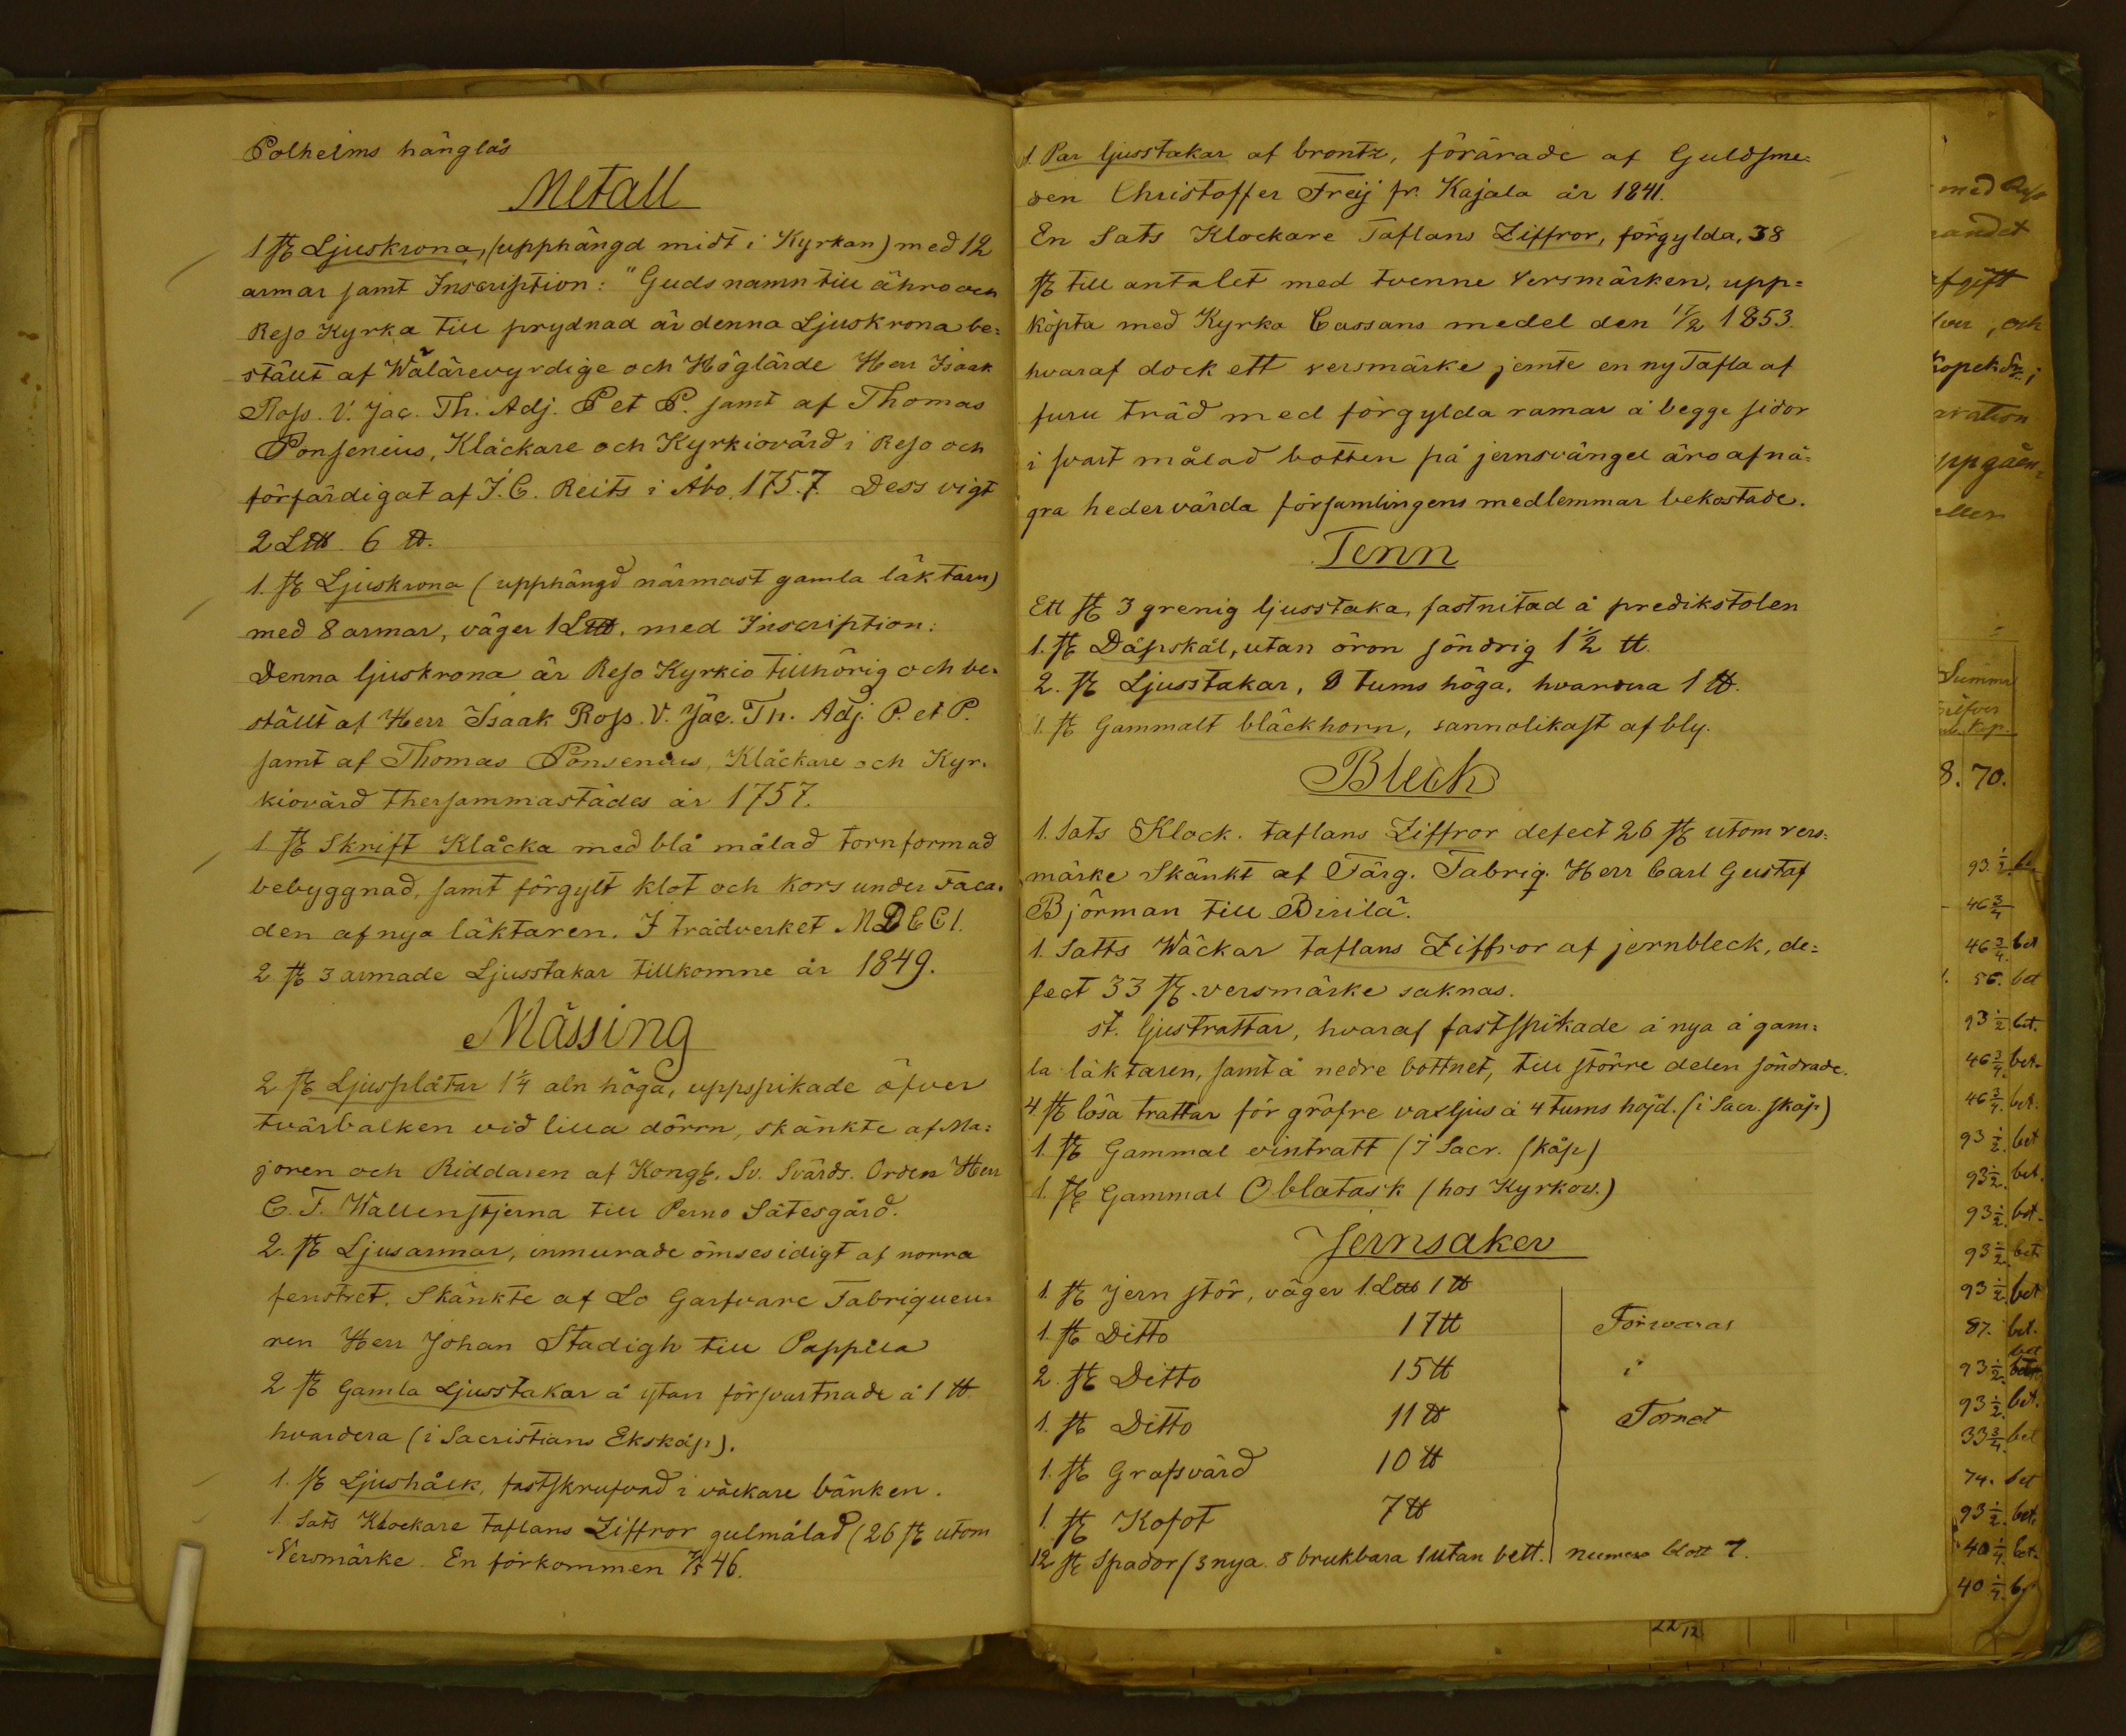 Polhelms hänglås
Metall
1 st Ljuskrona, (upphängd midt i Kyrkan) med 12
armar samt Inscription: "Guds namn till ähra och
Reso Kyrka till prydnad är denna Ljuskrona be=
stält af Wälärevyrdige och Höglärde Herr Isaak
Ross. V. Jac. Th. Adj. P et P. samt af Thomas
Ponsenius, Kläckare och Kyrkiovärd i Reso och
förfärdigat af J. C. Reits i Åbo. 1757. Dess vigt
2 L℔. 6 ℔.
1. st Ljuskrona (upphängd närmast gamla läktarn)
med 8 armar, väger 1 L℔. med Inscription:
Denna ljuskrona är Reso Kyrkio tillhörig och be=
stält af Herr Isaak Ross. V. Jac. Th. Adj. P. et P.
samt af Thomas Ponsenius, Kläckare och Kyr=
kiovärd thersammastädes år 1757.
1. st Skrift Klåcka med blå målad tornformad
bebyggnad, samt förgylt klot och kors under Faca=
den af nya läktaren. I trädverket MDCCI.
2 st 3 armade Ljusstakar tillkomne år 1849.
Mässing
2 st Ljusplåtar 1 1/4 aln höga, uppspikade öfver
tvärbalken vid lilla dörrn, skänkte af Ma=
joren och Riddaren af Kongl. Sv. Svärds. Orden Herr
C. F. Wallenstjerna till Perno Sätesgård.
2. st Ljusarmar, inmurade ömsesidigt af norra
fenstret. Skänkte af Lo Garfvare Fabriqueu=
ren Herr Johan Stadigh till Pappila
2 st Gamla Ljusstakar å ytan försvartnade à 1 ℔
hvardera (i Sacristians Ekskåp).
1. st Ljushålk, fastskrufvad i väckare bänken.
1. Sats Klockare taflans Ziffror gulmålad (26 st utom
Versmärke. En förkommen 46.
1. Par ljusstakar af brontz, förärade af Guldsme=
den Christoffer Freij fr. Kajala år 1841.
En Sats Klockare Taflans Ziffror, förgylda, 38
st till antalet med tvenne Versmärken, upp=
köpta med Kyrko Cassans medel den 1853.
hvaraf dock ett versmärke jemte en ny Tafla af
furu träd med förgylda ramar å begge sidor
i svart målad botten på jernsvängel äro af nå=
gra hedervärda församlingens medlemmar bekostade.
Tenn
Ett st 3 grenig ljusstaka, fastnitad å predikstolen
1. st Dåpskål, utan öron söndrig 1 1/2 ℔.
2. st Ljusstakar, 8 tums höga, hvardera 1 ℔.
1. st Gammalt bläckhorn, sannolikast af bly.
Bleck
1. Sats Klock. taflans Ziffror defect 26 st utom vers=
märke Skänkt af Färg. Fabriq. Herr Carl Gustaf
Björman till Birilä.
1. Satts Wäckar taflans Ziffror af jernbleck, de=
fect 33 st. versmärke saknas.
st. ljustrattar, hvaraf fastspikade å nya å gam=
la läktaren, samt å nedre bottnet, till större delen söndrade.
4. st lösa trattar för gröfre vaxljus à 4 tums höjd. (i Sacr. skåp)
1. st Gammal vintratt (i Sacr. skåp)
1. st Gammal Oblatask (hos Kyrkov.)
Jernsaker
1. st Jern stör, väger 1 L℔ 1 ℔
1. st Ditto 17 ℔ Förvaras
2. st Ditto 15 ℔ i
1. st Ditto 11 ℔ Tornet
1. st Grafsvärd 10 ℔
1. st Kofot 7 ℔
12 st Spador (3 nya. 8 brukbara 1 utan bett. numera blott 7.
med
andet
fgift
ver, och
Kopek Sr;
aration
ppgåen=
eller
Summa
Silfver
kop.
8. 70.
93 1/2 be
46 3/4
46 3/4 bet
1. 56. bet
93 1/2 bet.
46 3/4 bet.
46 3/4 bet.
93 1/2 bet
93 1/2 bet.
93 1/2 bet.
93 1/2 bet.
93 1/2 bet
87. bet.
93 1/2 bet
93 1/2 bet.
33 3/4 bet
74. bet
93 1/2 bet.
40 1/4 bet.
40 1/4 b
22/12